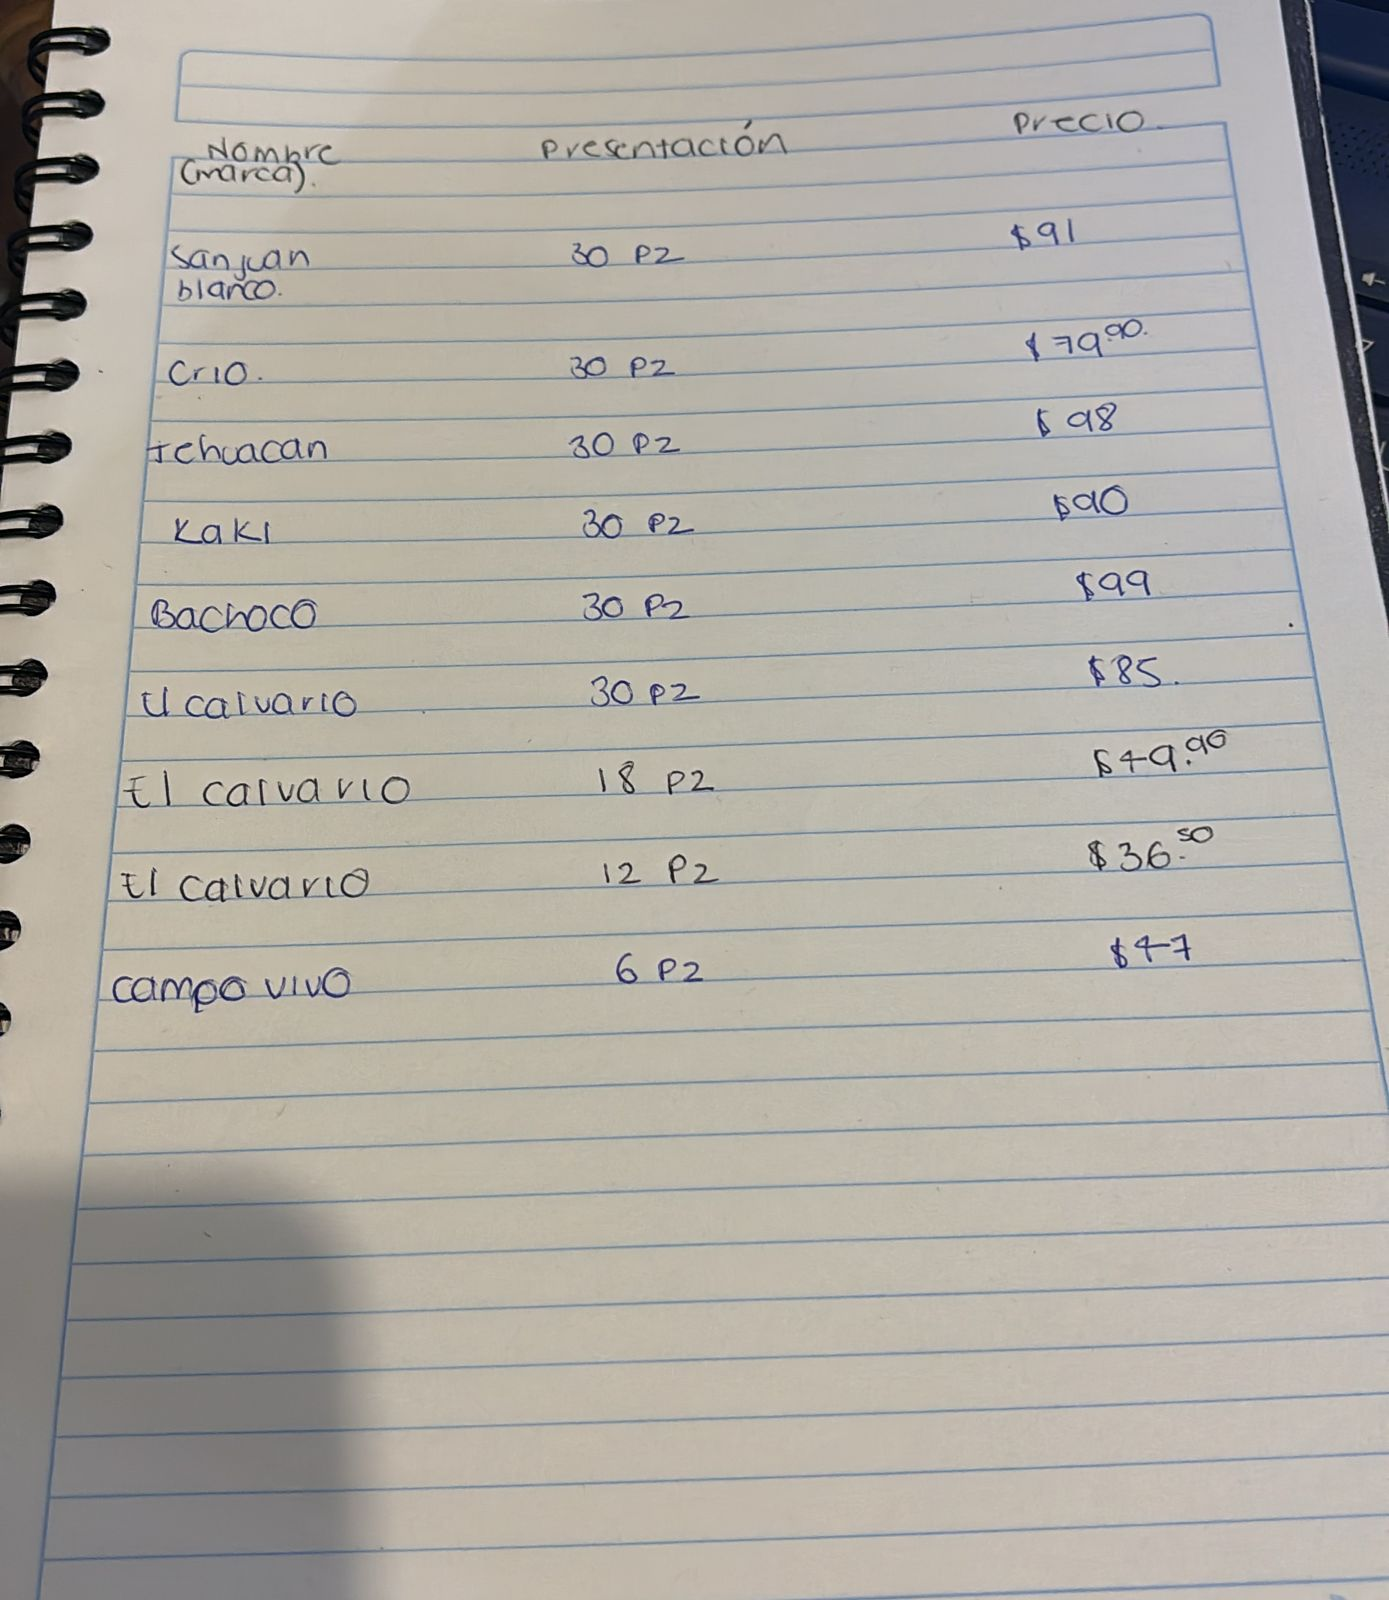 Nombre Presentación Precio.
(marca).
San juan 30 Pz $91
blanco.
Crio. 30 Pz $79.90.
tehuacan 30 Pz $98
Kaki 30 Pz $90
Bachoco 30 Pz $99
El calvario 30 Pz $85.
El calvario 18 Pz $49.90
El calvario 12 Pz $36.50
campo vivo 6 Pz $47